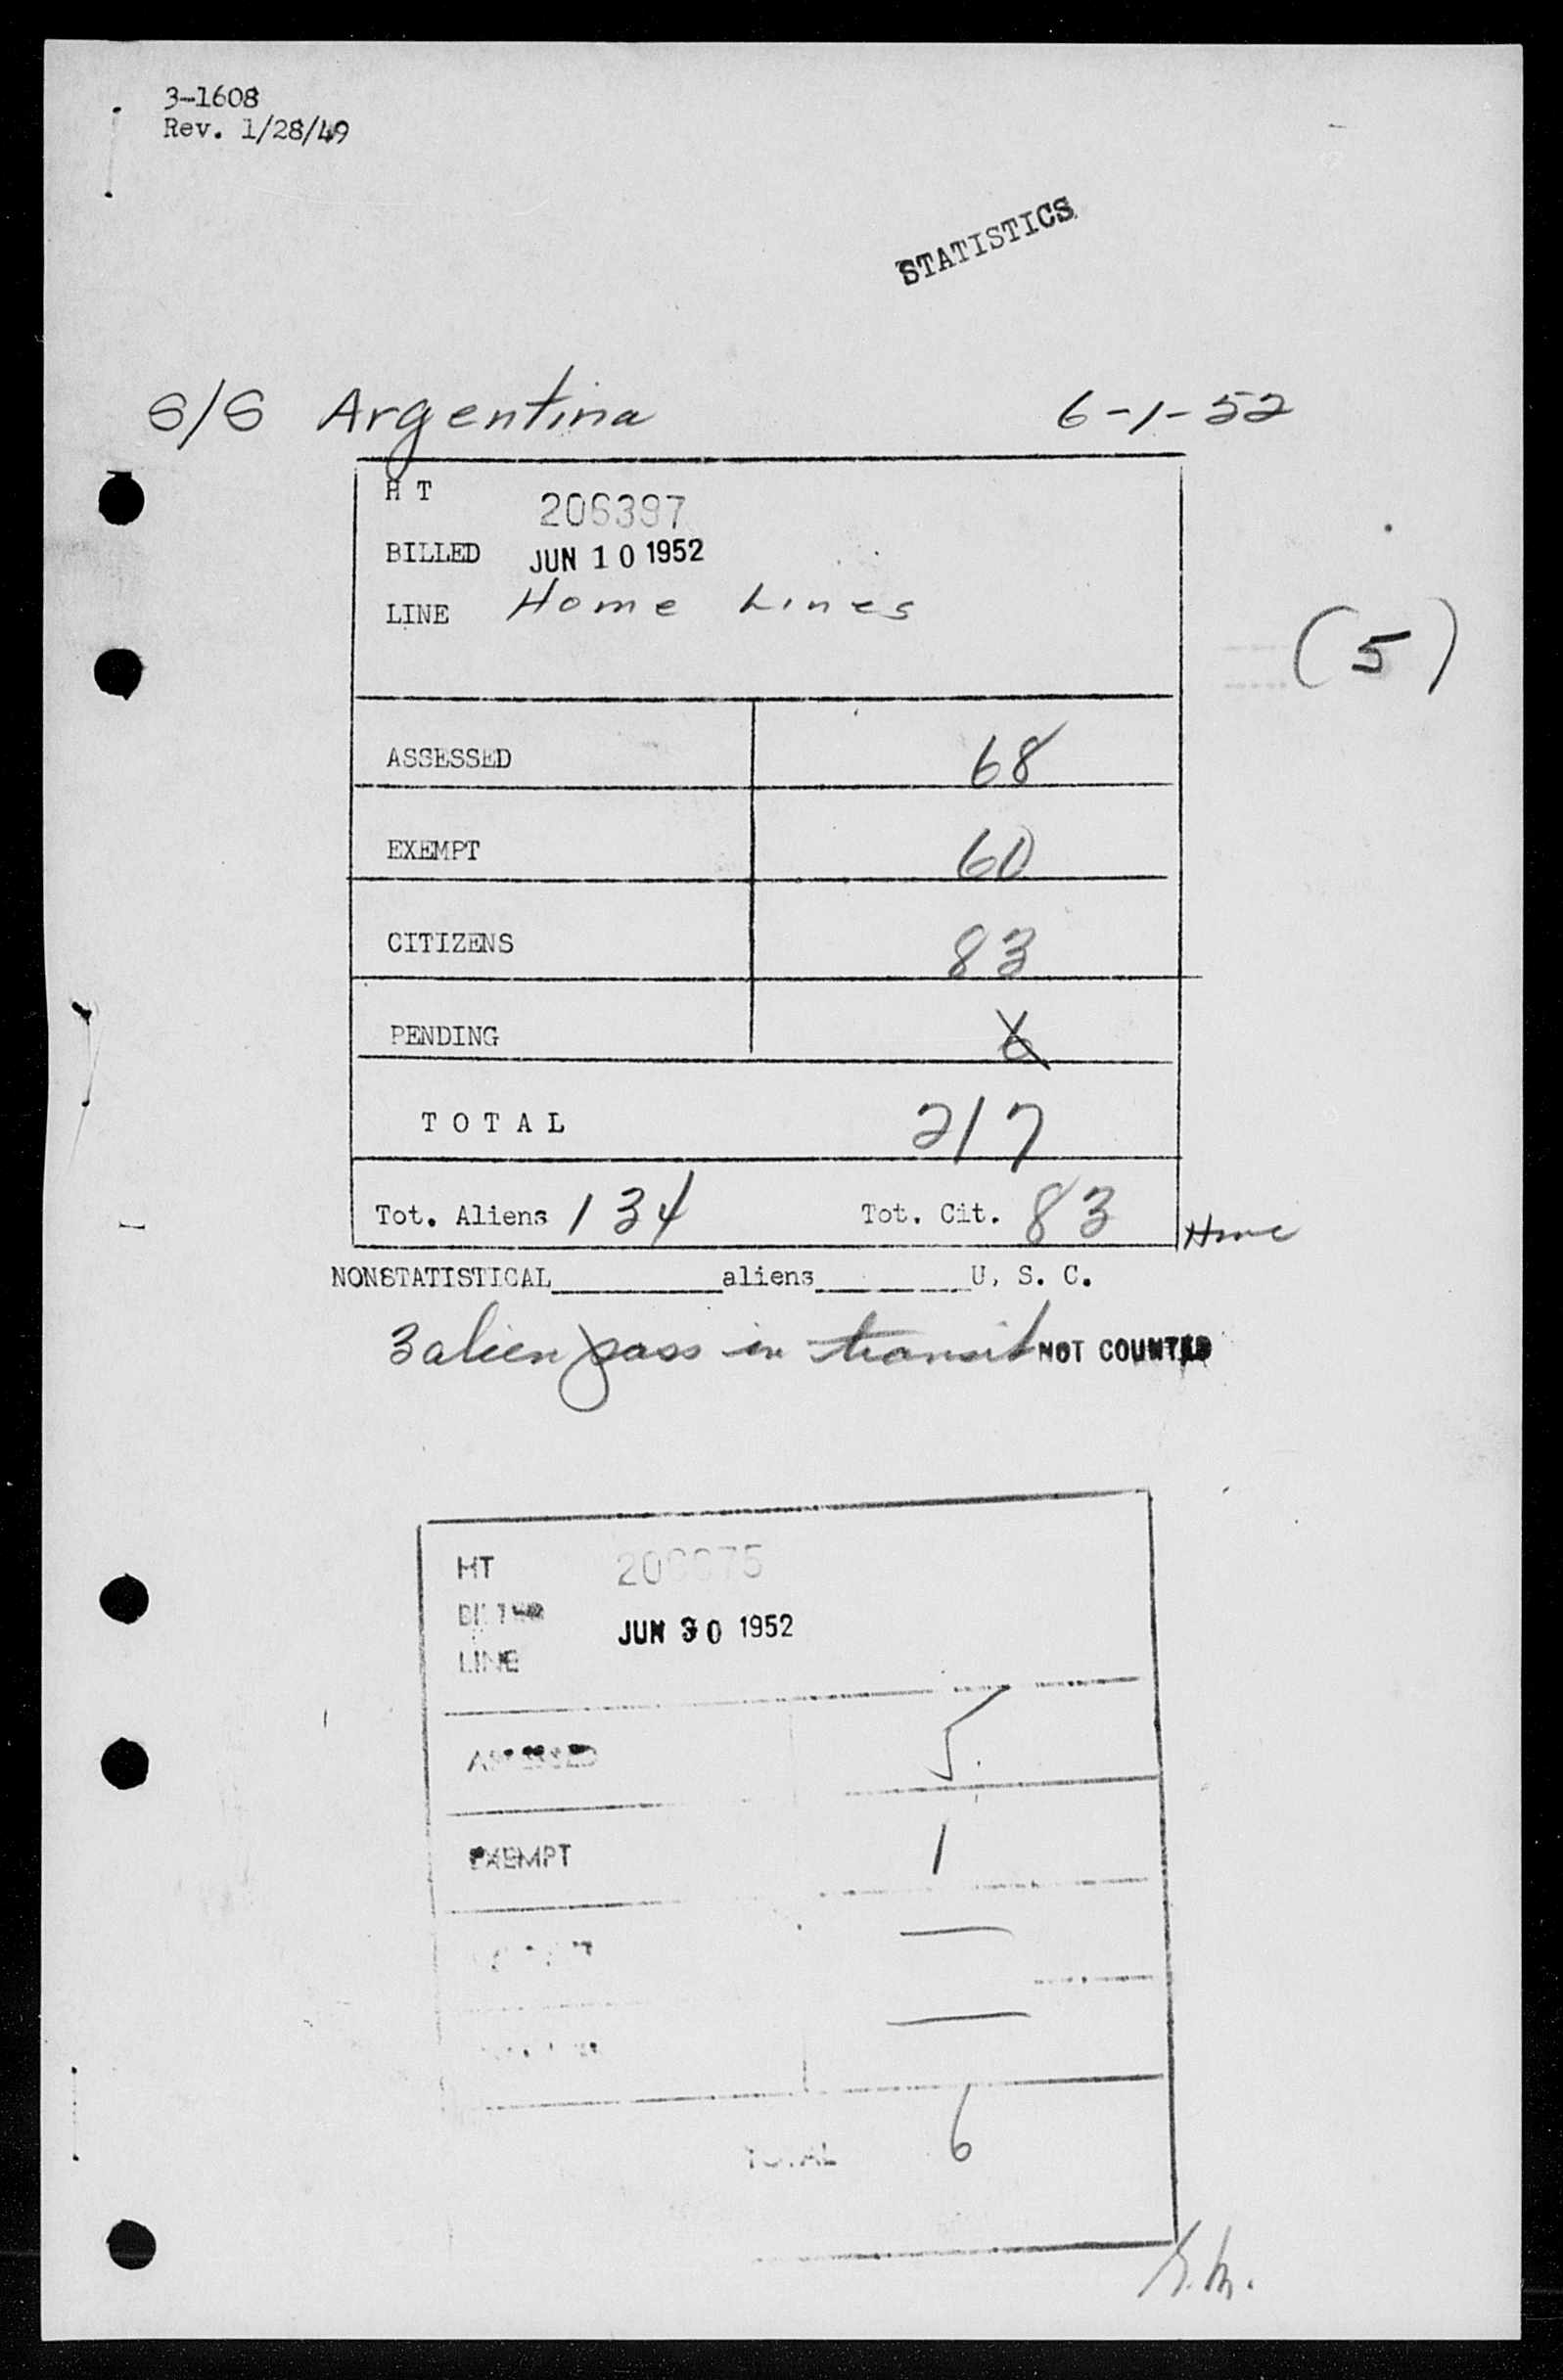 3-1608
Rev. 1/28/49
STATISTICS
S/S Argentina 6-1-52
H T 206397
BILLED JUN 10 1952
LINE Home Lines
(5)
ASSESSED 68
EXEMPT 60
CITIZENS 83
PENDING 6
TOTAL 217
Tot. Aliens 134 Tot. Cit. 83
Home
NONSTATISTICAL aliens U. S. C.
3 alien pass in transit NOT COUNTED
HT
JUN 30 1952
LINE
ASSESSED 5.
EXEMPT 1
TOTAL 6